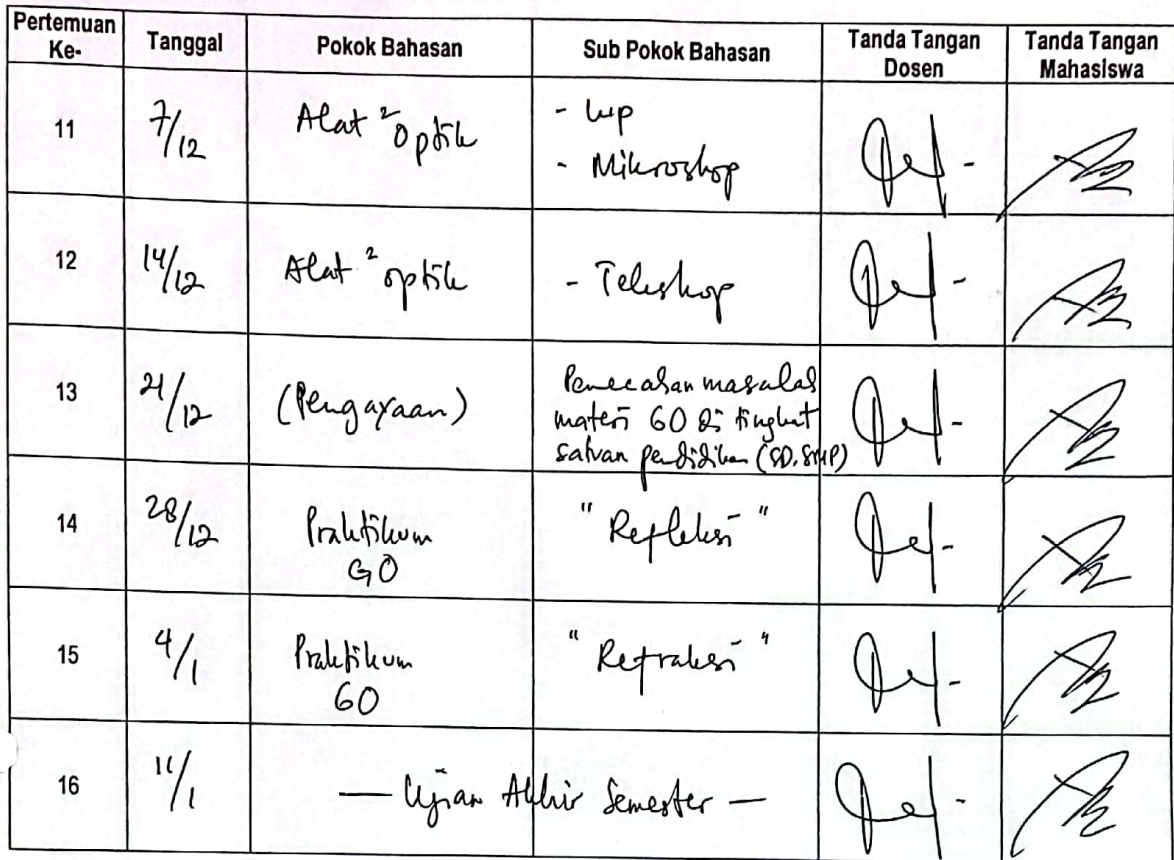 Pertemuan Ke- Tanggal Pokok Bahasan Sub Pokok Bahasan Tanda Tangan Dosen Tanda Tangan Mahasiswa
11 7/12 Alat ² Optik - Lup
- Mikroskop
12 14/12 Alat ² optik - Teleskop
13 21/12 (Pengayaan) Pemecahan masalah
materi GO di tingkat
satuan pendidikan (SD, SMP)
14 28/12 Praktikum "Refleksi"
GO
15 4/1 Praktikum "Refraksi"
GO
16 11/1 — Ujian Akhir Semester —